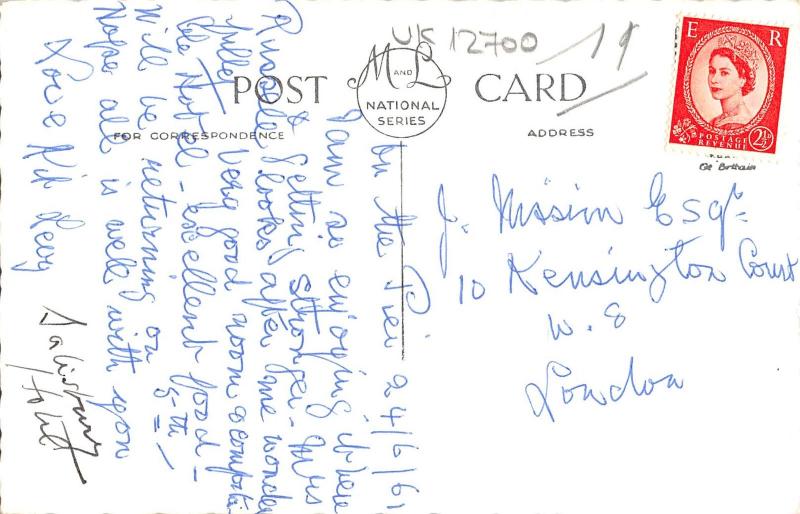 UK 12700 19
POST CARD
M AND L
NATIONAL
SERIES
FOR CORRESPONDENCE
ADDRESS
E R
POSTAGE
REVENUE
2½D
Gt Britain
On the Pier 24/6/61
I am so enjoying it here
& getting stronger – Mrs
Russell looks after me wonder
fully. Very good room & comforta
ble Hotel – excellent food –
Will be returning on 5th –
Hope all is well with you
Love Kit
Salisbury
Hotel
J. Mission Esqr
10 Kensington Court
W. 8
London